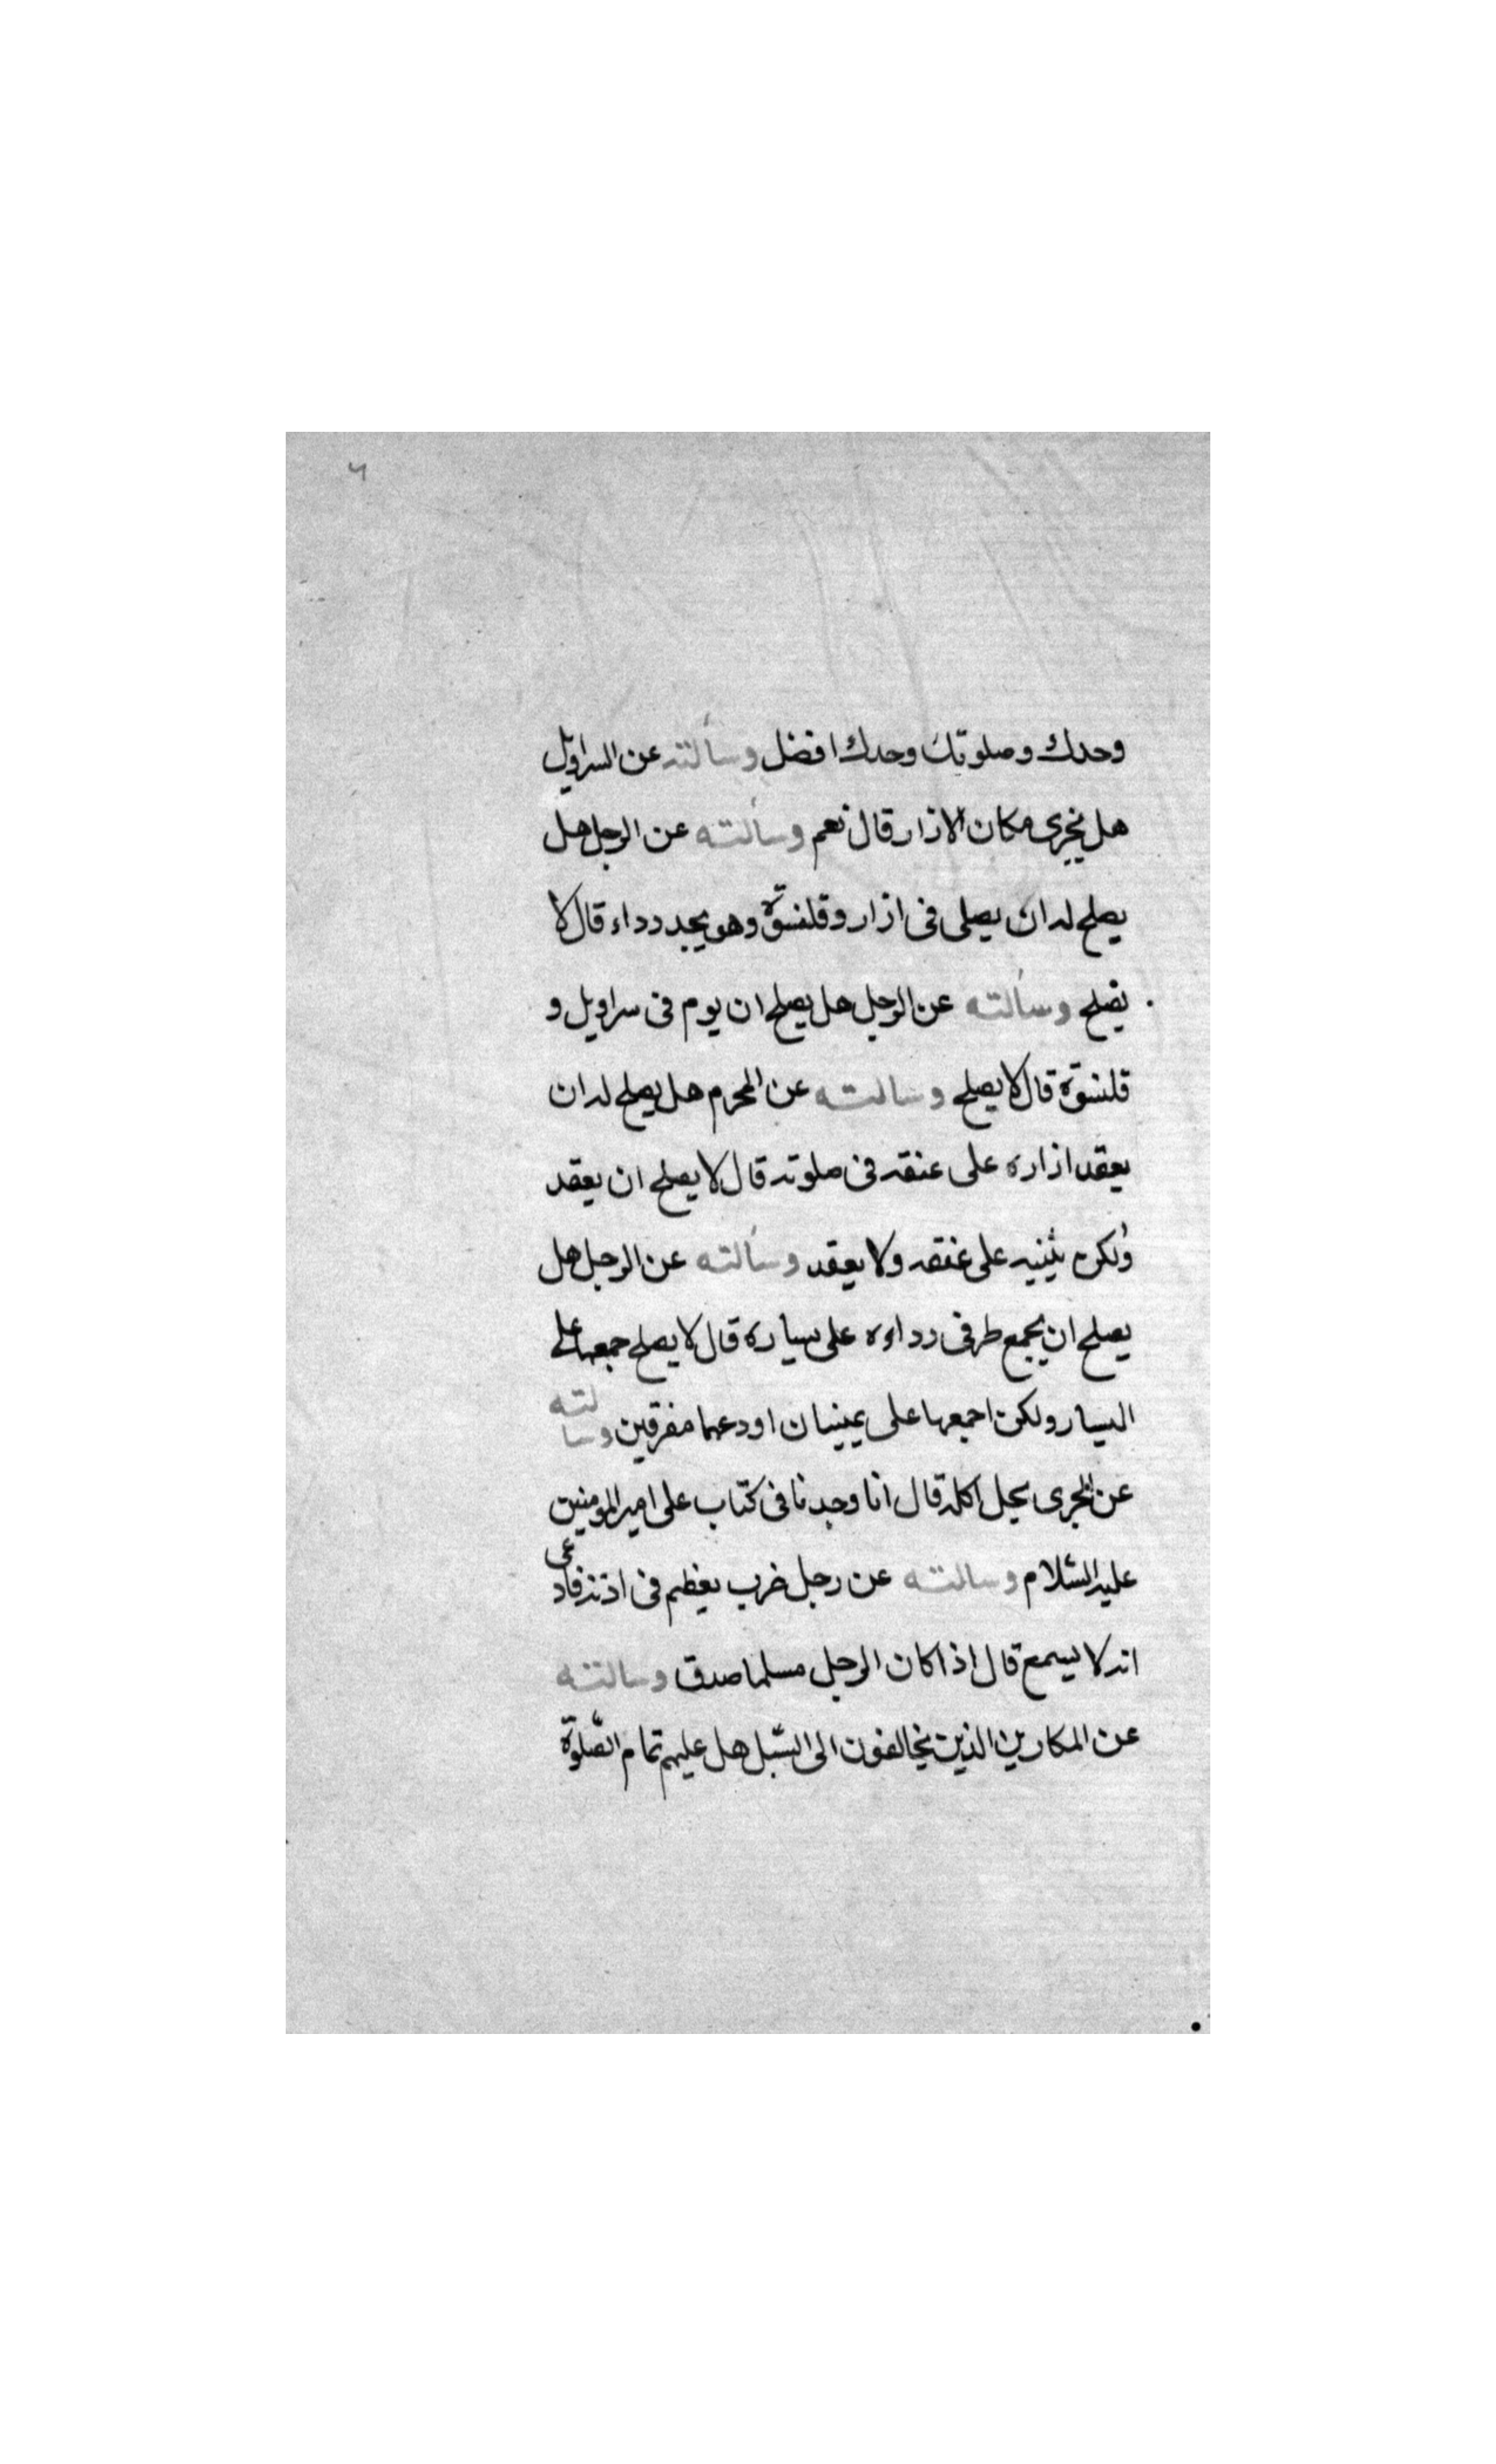 ٦
وحدك وصلوتك وحدك افضل وسألته عن السراويل
هل يجزى مكان الازار قال نعم وسألته عن الرجل هل
يصلح له ان يصلى فى ازار وقلنسوة وهو يجد رداء قال لا
يصلح وسألته عن الرجل هل يصلح ان يوم فى سراويل و
قلنسوة قال لا يصلح وسالته عن المحرم هل يصلح له ان
يعقد ازاره على عنقه فى صلوته قال لا يصلح ان يعقد
ولكن يثنيه على عنقه ولا يعقد وسألته عن الرجل هل
يصلح ان يجمع طرفى رداءه على يساره قال لا يصلح جمعهما على
اليسار ولكن اجمعها على يمينك او دعهما مفرقين وسالته
عن الجرى يحل اكله قال انا وجدنا فى كتاب على امير المومنين
عليه السّلام وسالته عن رجل ضرب بعظم فى اذنه فادعى
انه لا يسمع قال اذا كان الرجل مسلما صدق وسالته
عن المكارين الذين يخالفون الى السّبل هل عليهم تمام الصّلوة